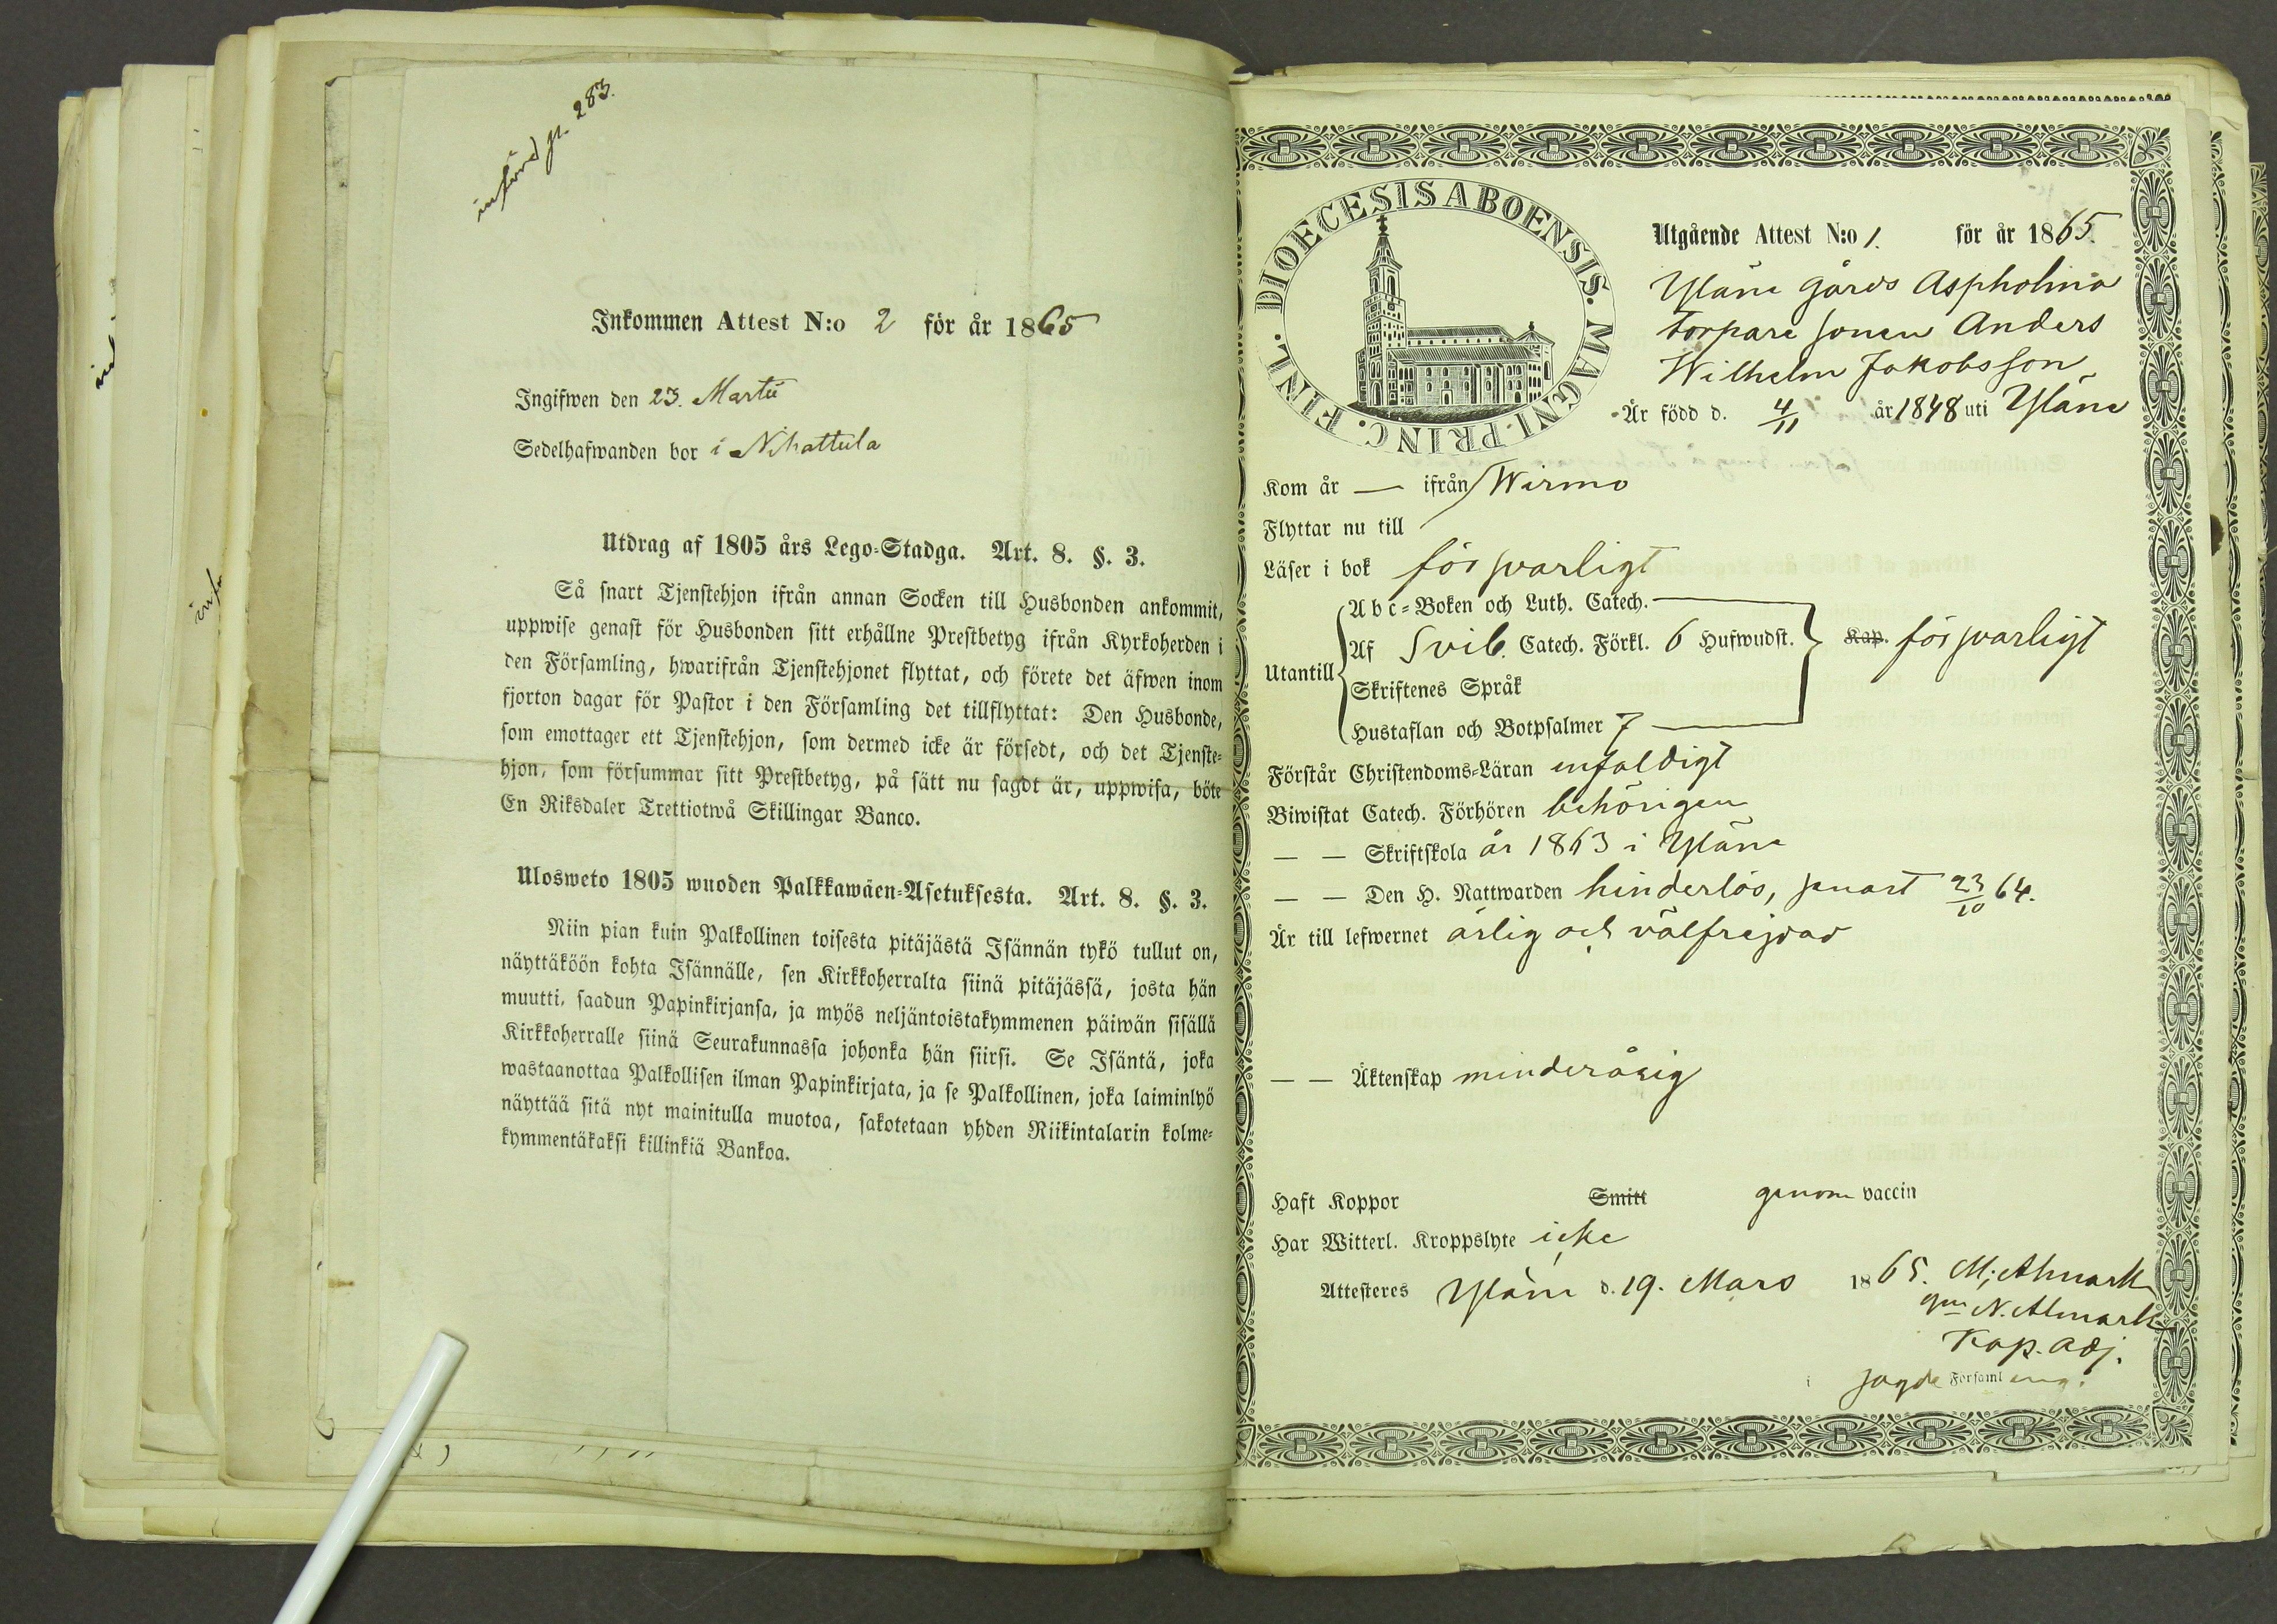 införd p. 283.
Inkommen Attest N:o 2 för år 1865
Ingifwen den 23. Martii
Sedelhafwanden bor i Nihattula
Utdrag af 1805 års Lego-Stadga. Art. 8. §. 3.
Så snart Tjenstehjon ifrån annan Socken till Husbonden ankommit,
uppwise genast för Husbonden sitt erhållne Prestbetyg ifrån Kyrkoherden i
den Församling, hwarifrån Tjenstehjonet flyttat, och förete det äfwen inom
fjorton dagar för Pastor i den Församling det tillflyttat: Den Husbonde,
som emottager ett Tjenstehjon, som dermed icke är försedt, och det Tjenste-
hjon, som försummar sitt Prestbetyg, på sätt nu sagdt är, uppwisa, böte
En Riksdaler Trettiotwå Skillingar Banco.
Ulosweto 1805 wuoden Palkkawäen-Asetuksesta. Art. 8. §. 3.
Niin pian kuin Palkollinen toisesta pitäjästä Isännän tykö tullut on,
näyttäköön kohta Isännälle, sen Kirkkoherralta siinä pitäjässä, josta hän
muutti, saadun Papinkirjansa, ja myös neljäntoistakymmenen päiwän sisällä
Kirkkoherralle siinä Seurakunnassa johonka hän siirsi. Se Isäntä, joka
wastaanottaa Palkollisen ilman Papinkirjata, ja se Palkollinen, joka laiminlyö
näyttää sitä nyt mainitulla muotoa, sakotetaan yhden Riikintalarin kolme-
kymmentäkaksi killinkiä Bankoa.
DIOECESIS ABOENSIS. MAGNI. PRINC. FINL.
Utgående Attest N:o 1. för år 1865.
Yläne gårds Aspholma
torpare sonen Anders
Wilhelm Jakobsson
Är född d. 4/11 år 1848 uti Yläne
Kom år — ifrån
Wirmo
Flyttar nu till
Läser i bok försvarligt
Abc-Boken och Luth. Catech.
Utantill Af Svib. Catech. Förkl. 6 Hufwudst. Kap. försvarligt
Skriftenes Språk
Hustaflan och Botpsalmer 7
Förstår Christendoms-Läran enfaldigt
Biwistat Catech. Förhören behörigen
— — Skriftskola år 1863 i Yläne
— — Den H. Nattwarden hinderlös, senast 23/10 64.
Är till lefwernet ärlig och välfrejdad
— — Äktenskap minderårig
Haft Koppor Smitt genom vaccin
Har Witterl. Kroppslyte icke
Attesteres Yläne d. 19. Mars 1865. M. Almark
gm N. Almark
Kap. adj.
i sagde Församling.